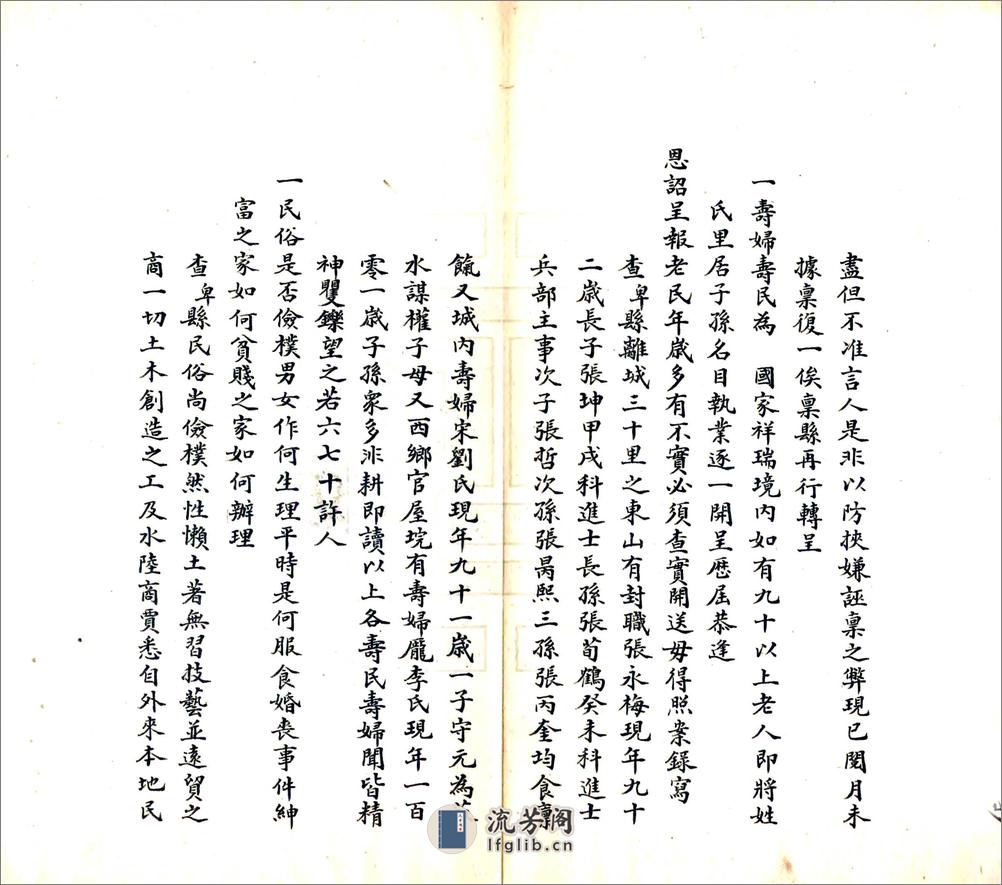 盡但不准言人是非以防挾嫌誣稟之弊現已閱月未
據稟復一俟稟縣再行轉呈
一壽婦壽民為　國家祥瑞境內如有九十以上老人即將姓
氏里居子孫名目執業逐一開呈歷屆恭逢
恩詔呈報老民年歲多有不實必須查實開送毋得照案錄寫
查卑縣離城三十里之東山有封職張永梅現年九十
二歲長子張坤甲戌科進士長孫張荀鶴癸未科進士
兵部主事次子張哲次孫張昺熙三孫張丙奎均食廩
餼又城內壽婦宋劉氏現年九十一歲一子守元為
水謀權子母又西鄉官屋垸有壽婦龐李氏現年一百
零一歲子孫眾多非耕即讀以上各壽民壽婦聞皆精
神矍鑠望之若六七十許人
一民俗是否儉樸男女作何生理平時是何服食婚喪事件紳
富之家如何貧賤之家如何辦理
查卑縣民俗尚儉樸然性懶土著無習技藝並遠貿之
商一切土木創造之工及水陸商賈悉自外來本地民
流芳閣
lfglib.cn